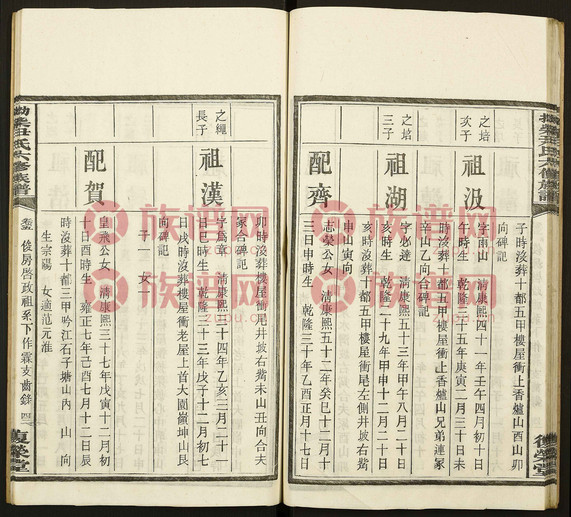 子時沒葬十都五甲樓屋衝上香爐山酉山卯
向碑記
之培
次子
祖汲
字雨山 清康熙四十一年壬午四月初十日
午時生 乾隆三十五年庚寅二月三十日未
時沒葬十都五甲樓屋衝上香爐山兄弟連冢
辛山乙向合碑記
之培
三子
祖湖
字必達 清康熙五十三年甲午八月二十日
亥時生 乾隆二十九年甲申十二月二十日
亥時沒葬十都五甲樓屋衝尾左側井坡右觜
申山寅向
配齊
志榮公女 清康熙五十二年癸巳十二月二十
三日申時生 乾隆三十年乙酉正月初七日
卯時沒葬樓屋衝尾井坡右觜未山丑向合夫
冢合碑記
之繩
長子
祖漢
字爲章 清康熙三十四年乙亥三月二十一
日巳時生 乾隆三十三年戊子十二月初七
日戌時沒葬樓屋衝老屋上首大園嶺坤山艮
向碑記
子一 女一
配賀
皇飛公女 清康熙三十七年戊寅十二月初
十日酉時生 雍正七年己酉七月十二日辰
時沒葬十都三甲吟江石子塘山內 山 向
生宗陽 女適范元准
俊房啓政祖系下作霖支齒錄
拗柴尹氏六修族譜
復榮堂
族谱网